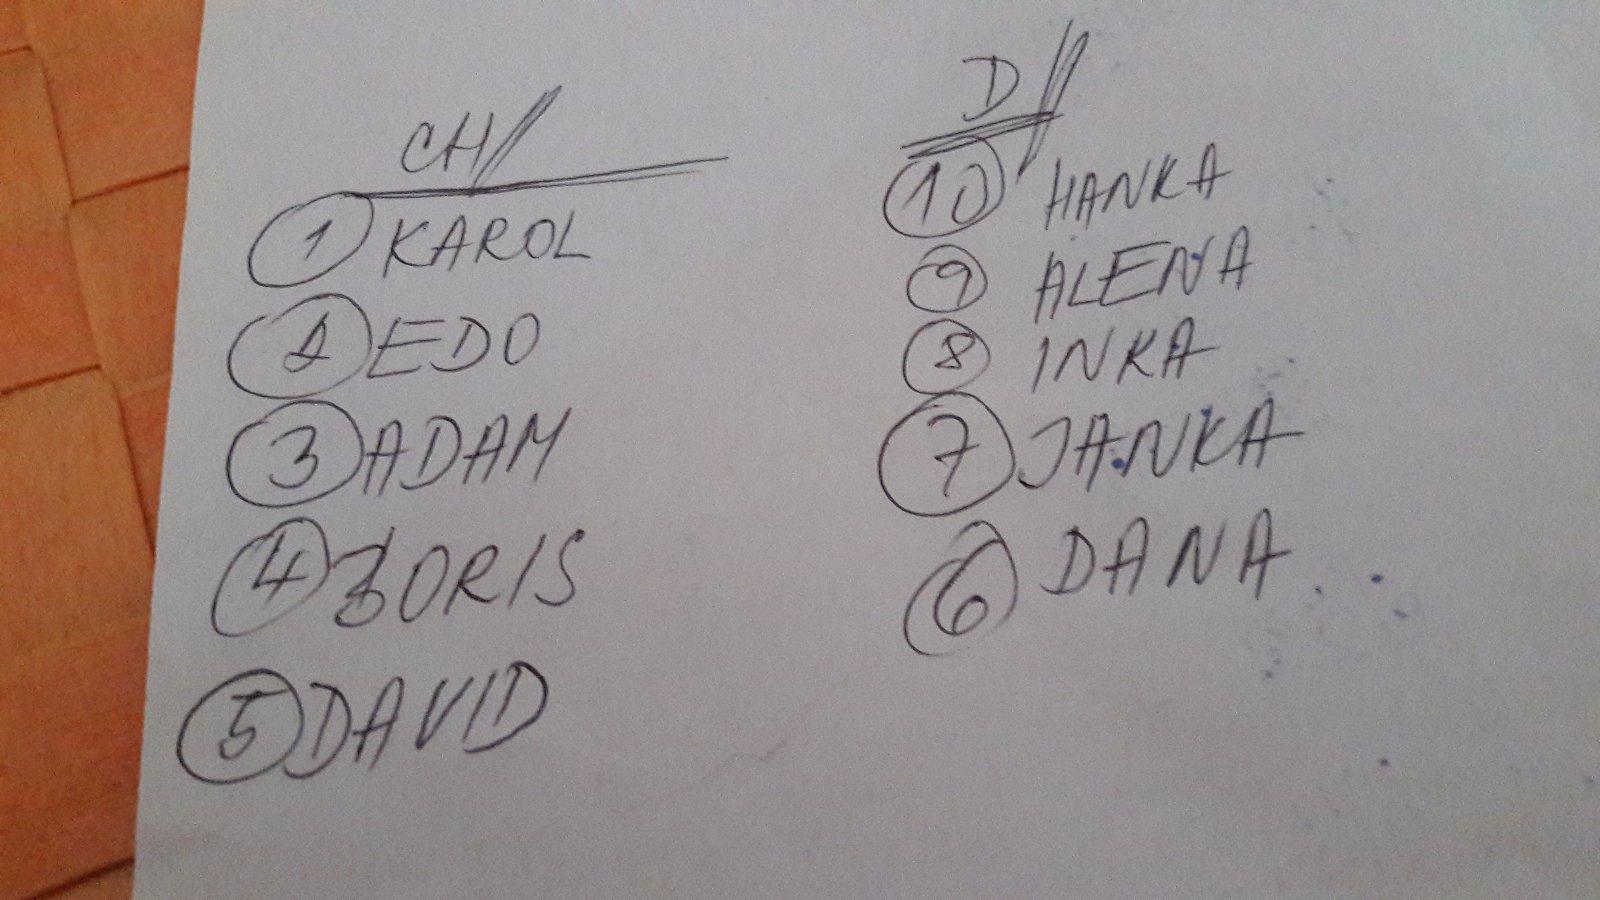 CH
1 KAROL
2 EDO
3 ADAM
4 BORIS
5 DAVID
D
10 HANKA
9 ALENA
8 INKA
7 JANKA
6 DANA